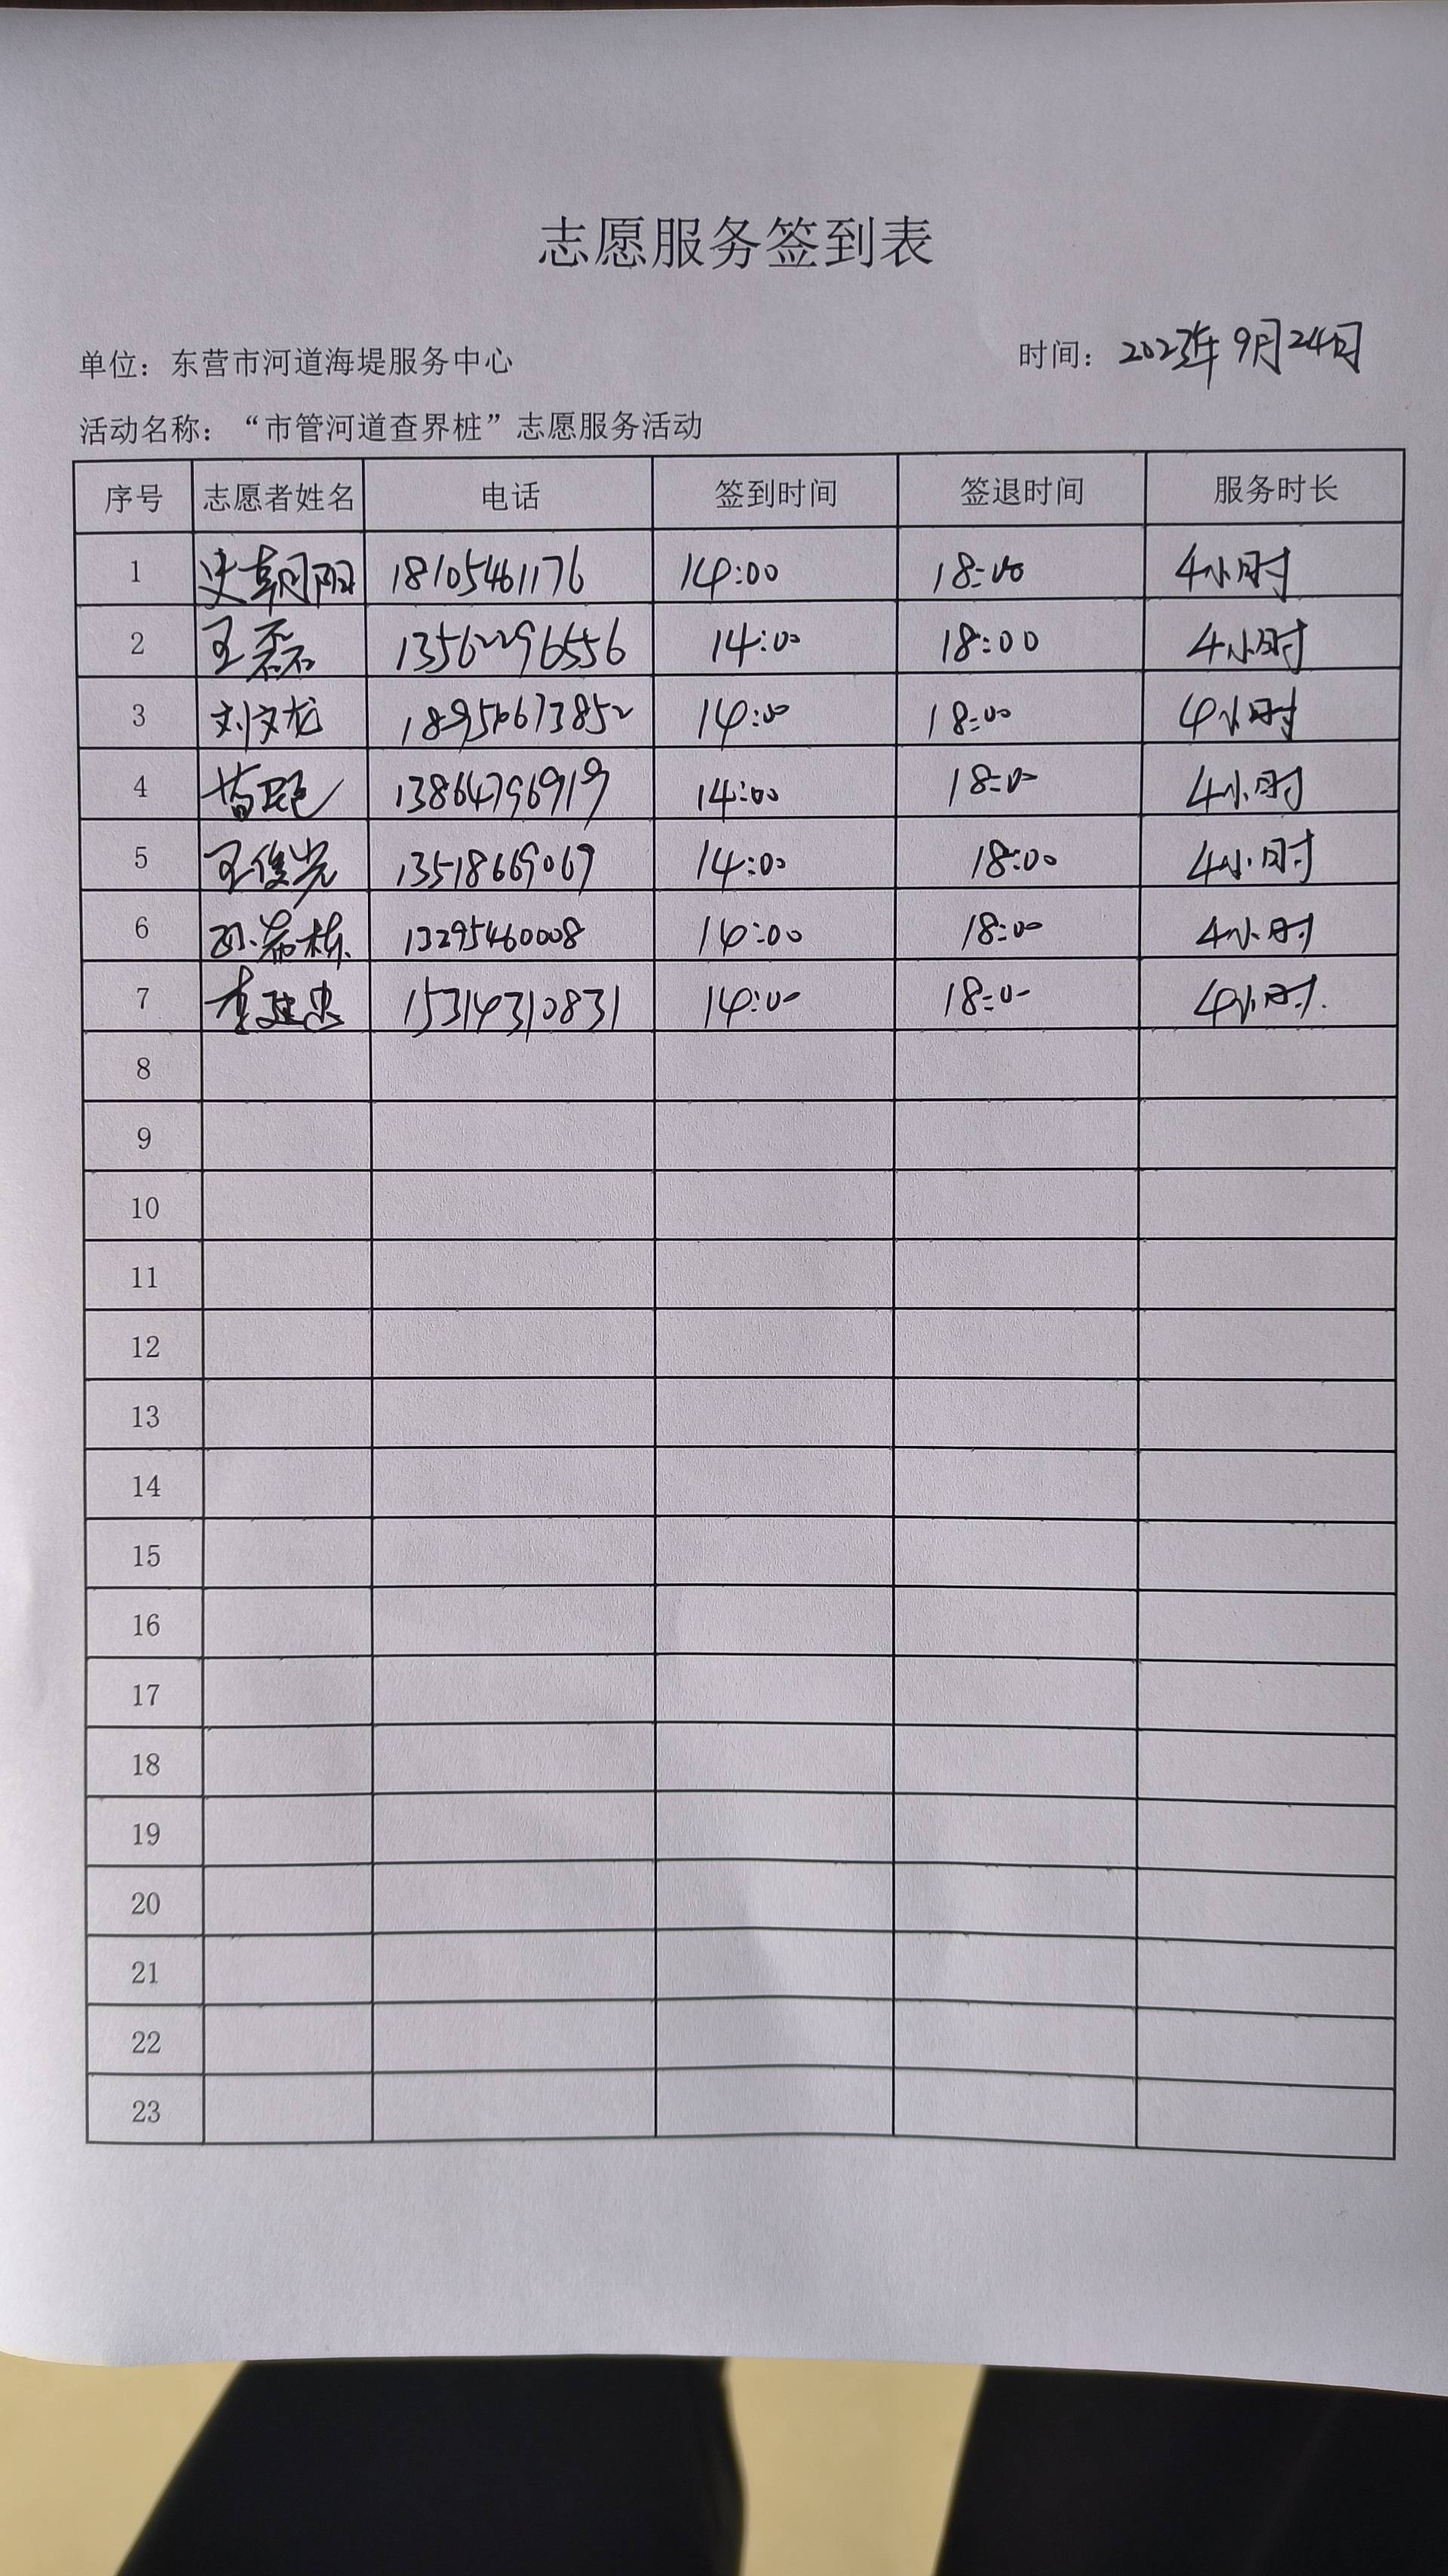 志愿服务签到表
单位：东营市河道海堤服务中心 时间：2023年9月24日
活动名称：“市管河道查界桩”志愿服务活动
序号 志愿者姓名 电话 签到时间 签退时间 服务时长
1 史朝阳 18105461176 14:00 18:00 4小时
2 王磊 13562296556 14:00 18:00 4小时
3 刘文龙 14:00 18:00 4小时
4 13864796919 14:00 18:00 4小时
5 王俊光 13518669069 14:00 18:00 4小时
6 孙希栋 13295460008 14:00 18:00 4小时
7 李延忠 15314310831 14:00 18:00 4小时.
8
9
10
11
12
13
14
15
16
17
18
19
20
21
22
23